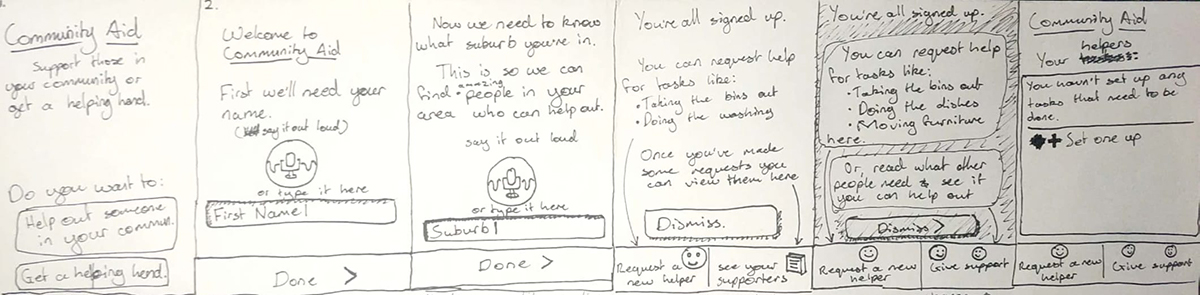 1.
Community Aid
Support those in
your community or
get a helping hand.
Do you want to:
Help out someone
in your commun.
Get a helping hand.
2.
Welcome to
Community Aid
First we'll need your
name.
(say it out loud)
or type it here
First Name|
Done >
Now we need to know
what suburb you're in.
This is so we can
find amazing people in your
area who can help out.
say it out loud
or type it here
Suburb|
Done >
You're all signed up.
You can request help
for tasks like:
• Taking the bins out
• Doing the washing
Once you've made
some requests you
can view them here
Dismiss.
Request a
new helper
see your
supporters
You're all signed up.
You can request help
for tasks like:
• Taking the bins out
• Doing the dishes
• Moving furniture
here.
Or, read what other
people need & see if
you can help out
Dismiss >
Request a new
helper
Give support
Community Aid
Your helpers
You havn't set up any
tasks that need to be
done.
+ Set one up
Request a new
helper
Give support